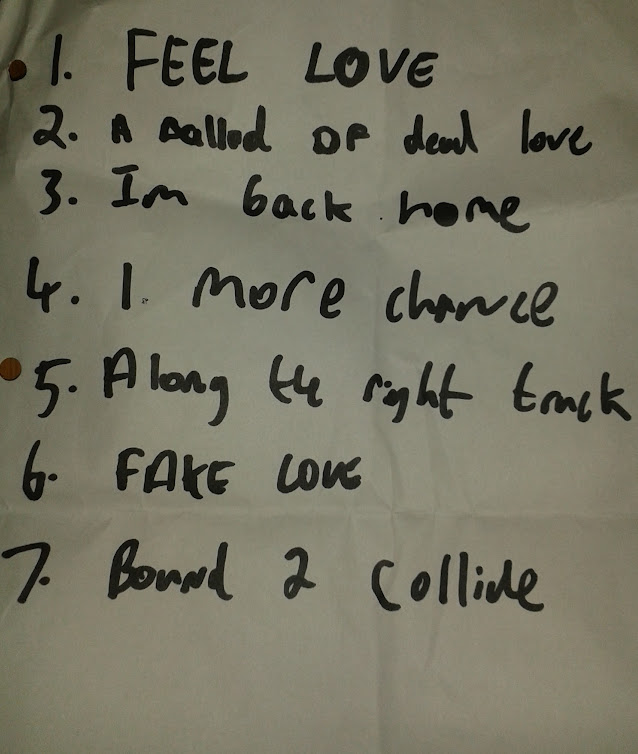 1. FEEL LOVE
2. A Ballad OF dead love
3. Im back home
4. 1 more chance
5. Along the right track
6. FAKE LOVE
7. Bound 2 Collide